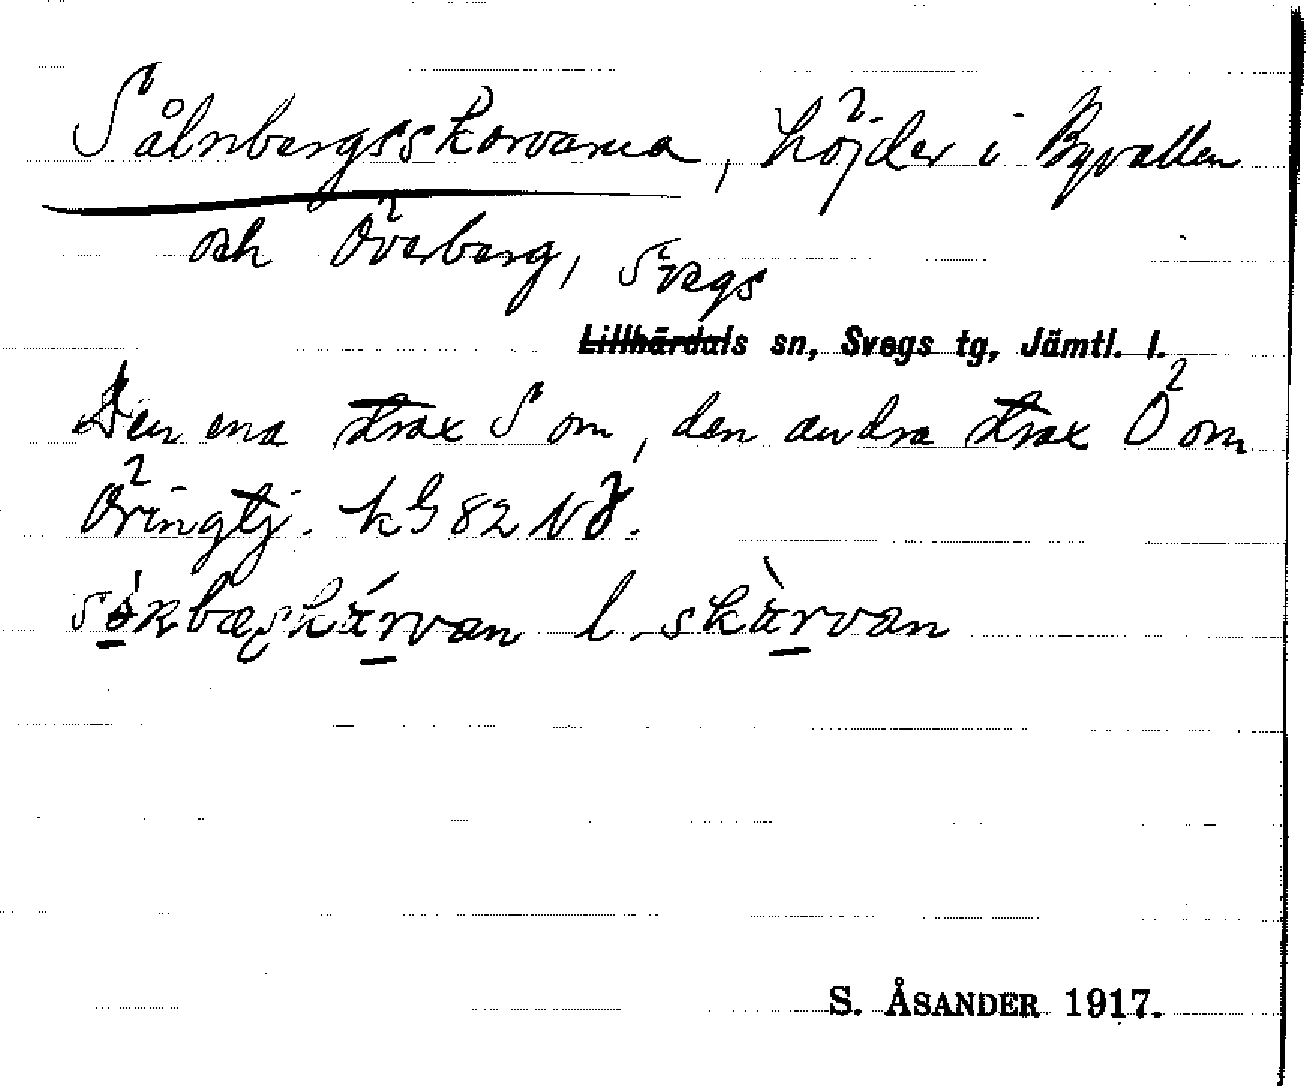 Sålnbergsskarvarna, höjder i Byvallen
och Överberg, Svegs
Lillhärdals sn, Svegs tg, Jämtl. l.
Den ena strax S om, den andra strax Ö om
Öringtj. kG 82 NÖ.
l. skàrvan
S. ÅSANDER 1917.